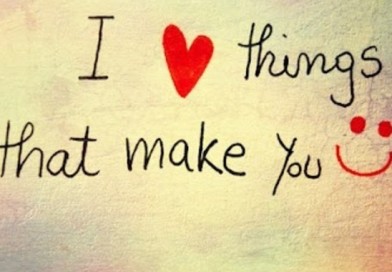 I ❤ things
that make you ☺